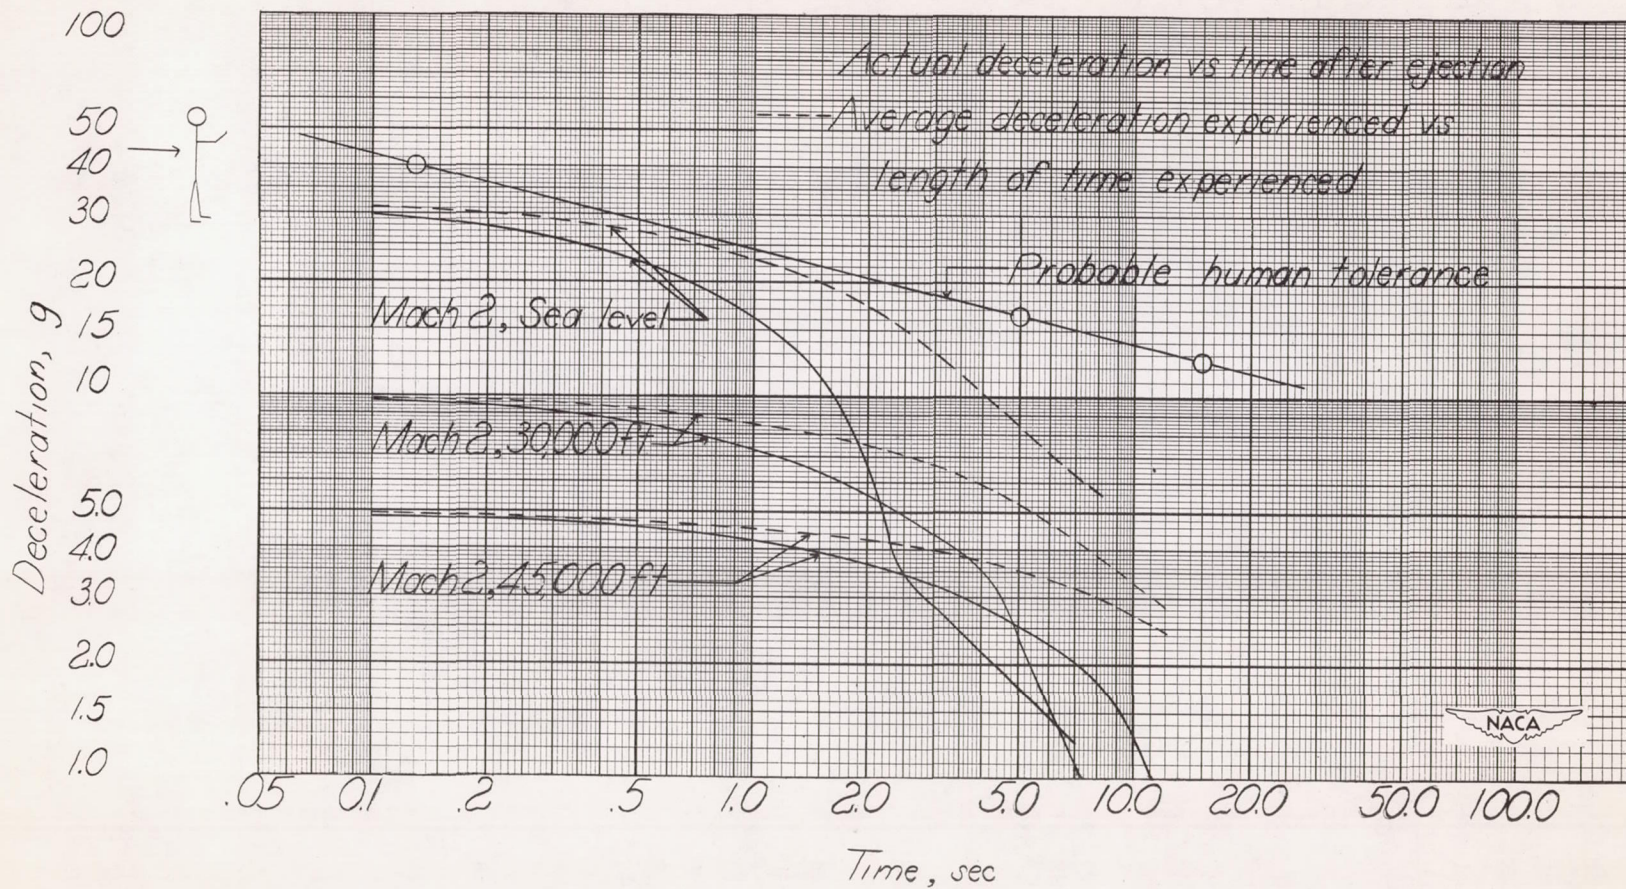 100
50
40
30
20
15
10
5.0
4.0
3.0
2.0
1.5
1.0
Deceleration, g
Actual deceleration vs time after ejection
Average deceleration experienced vs
length of time experienced
Probable human tolerance
Mach 2, Sea level
Mach 2, 30,000 ft
Mach 2, 45,000 ft
NACA
.05 0.1 .2 .5 1.0 2.0 5.0 10.0 20.0 50.0 100.0
Time, sec